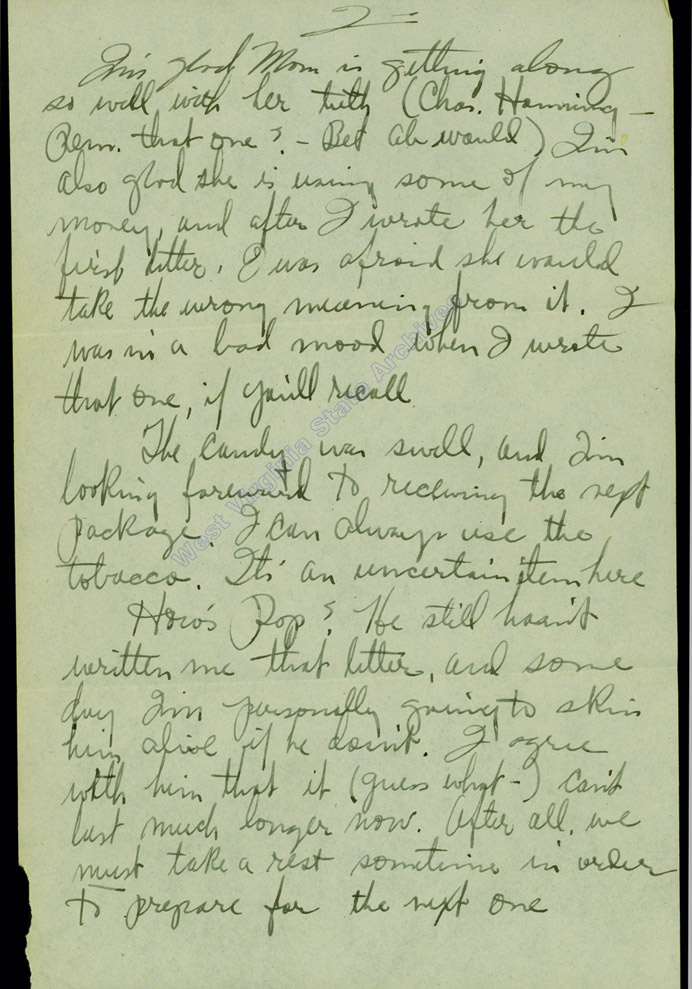 2
I'm glad Mom is getting along
so well with her teeth (Chas. Hanning –
Rem. that one? – Bet Ab would) I'm
also glad she is using some of my
money, and after I wrote her the
first letter, I was afraid she would
take the wrong meaning from it. I
was in a bad mood when I wrote
that one, if you'll recall
The candy was swell, and I'm
looking foreward to receiving the next
package. I can always use the
tobacco. It's an uncertain item here
How's Pop? He still hasn't
written me that letter, and some
day I'm personally going to skin
him alive if he doesn't. I agree
with him that it (guess what –) can't
last much longer now. After all, we
must take a rest sometime in order
to prepare for the next one
West Virginia State Archives